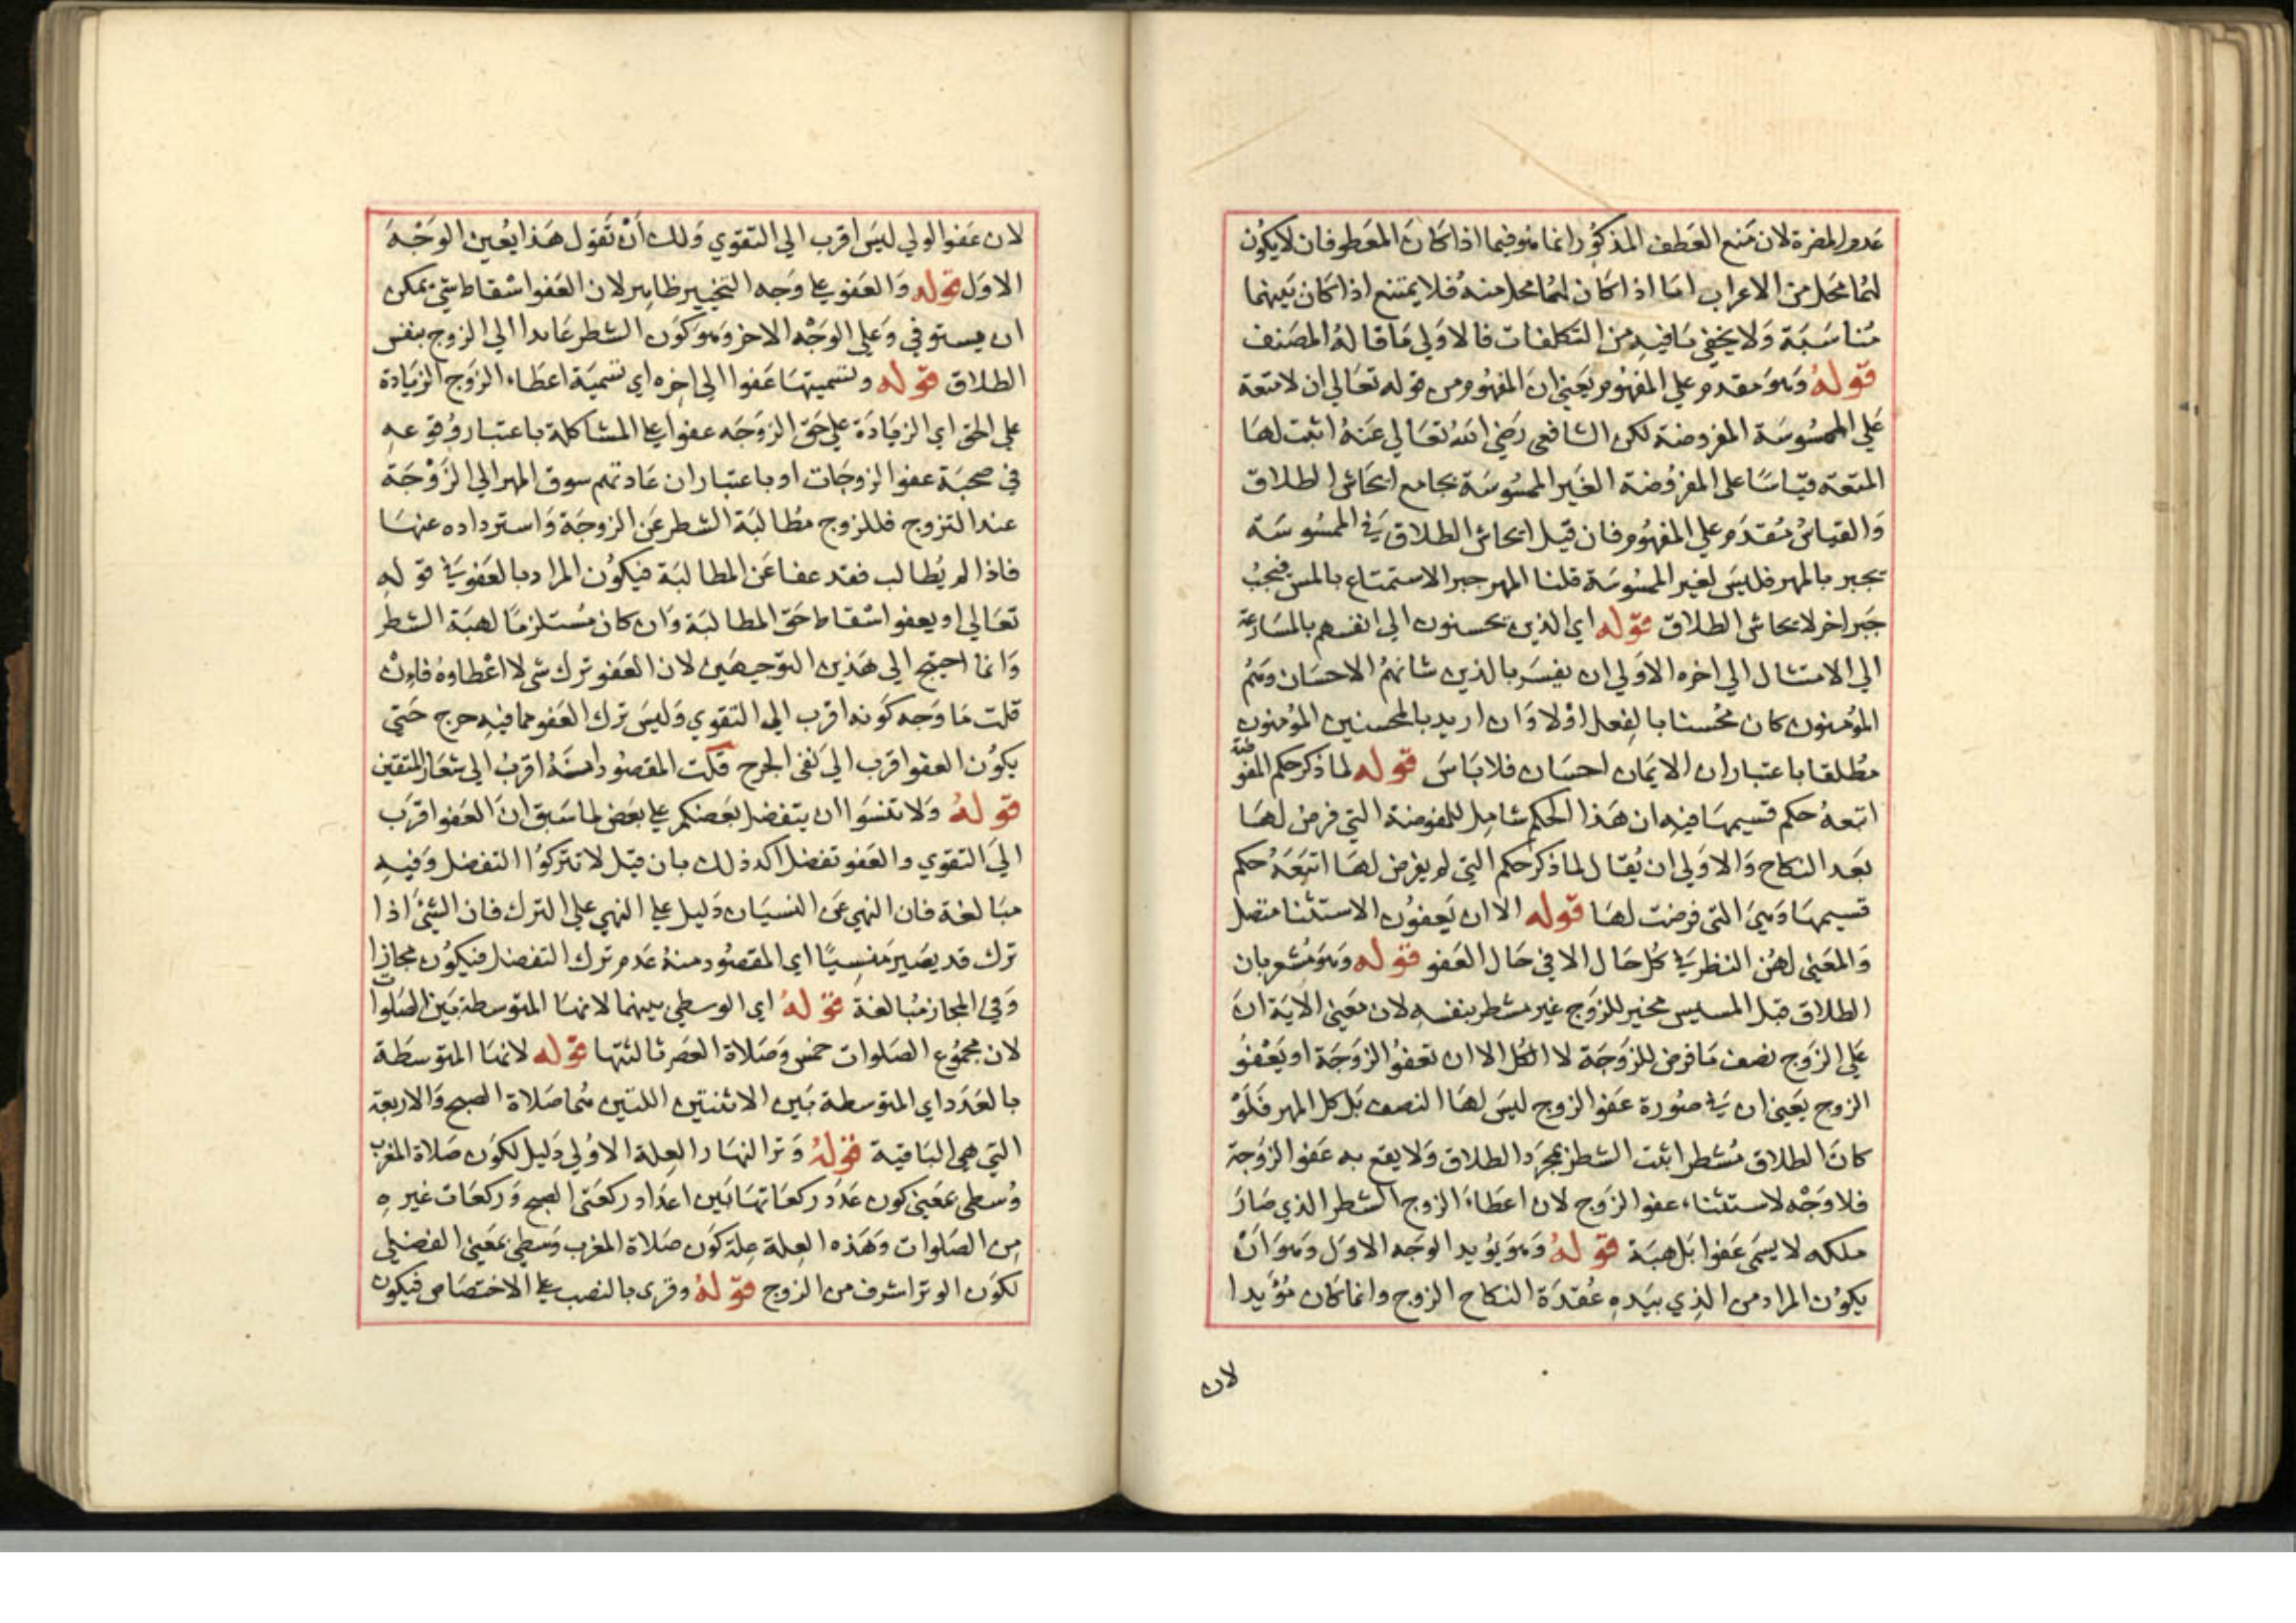 عدوا المضرة لان منع العطف المذكور انما هو فيما اذا كان المعطوفان لا يكون
لهما محل من الاعراب اما اذا كان لهما محل منه فلا يمتنع اذا كان بينهما
مناسبة ولا يخفي ما فيه من التكلفات فالاولي ما قاله المصنف
قوله وهو مقدم علي المفهوم يعني ان المفهوم من قوله تعالي ان لا متعة
علي الممسوسة المفروضة لكن الشافعي رضي الله تعالي عنه اثبت لها
المتعة قياسا علي المفروضة الغير الممسوسة بجامع ايحاش الطلاق
والقياس مقدم علي المفهوم فان قيل ايحاش الطلاق في الممسوسة
يجبر بالمهر فليس لغير الممسوسة قلنا المهر جبر الاستمتاع بالمس فيجب
جبر اخر لايحاش الطلاق قوله اي الذين يحسنون الي انفسهم بالمسارعة
الي الامتثال الي اخره الاولي ان يفسر بالذين شانهم الاحسان وهم
المؤمنون كان محسنا بالفعل اولا وان اريد بالمحسنين المؤمنون
مطلقا باعتبار ان الايمان احسان فلا باس قوله لما ذكر حكم المفوضة
اتبعه حكم قسيمها فيه ان هذا الحكم شامل للمفوضة التي فرض لها
بعد النكاح والاولي ان يقال لما ذكر حكم التي لم يفرض لها اتبعه حكم
قسيمها وهي التي فرضت لها قوله الا ان يعفون الاستثنا متصل
والمعني لهن الشطر في كل حال الا في حال العفو قوله وهو مشعر بان
الطلاق قبل المسيس مخير للزوج غير مشطر بنفسه لان معني الاية ان
علي الزوج نصف ما فرض للزوجة لا الكل الا ان تعفو الزوجة او يعفو
الزوج يعني ان في صورة عفو الزوج ليس لها النصف بل كل المهر فلو
كان الطلاق مشطرا ثبت الشطر بمجرد الطلاق ولا يقع به عفو الزوجة
فلا وجه لاستثناء عفو الزوج لان اعطاء الزوج الشطر الذي صار
ملكه لا يسمي عفوا بل هبة قوله وهو يؤيد الوجه الاول وهو ان
يكون المراد من الذي بيده عقدة النكاح الزوج وانما كان مؤيدا
لان
لان عفو الولي ليس اقرب الي التقوي ولك ان تقول هذا يعين الوجه
الاول قوله والعفو علي وجه التخيير ظاهر لان العفو اسقاط شي يمكن
ان يستوفي وعلي الوجه الاخر وهو كون الشطر عائدا الي الزوج بنفس
الطلاق قوله وتسميتها عفوا الي اخره اي تسمية اعطاء الزوج الزيادة
علي الحق اي الزيادة علي حق الزوجه عفوا علي المشاكلة باعتبار وقوعه
في صحبة عفو الزوجات او باعتبار ان عادتهم سوق المهر الي الزوجة
عند التزوج فللزوج مطالبة الشطر عن الزوجة واسترداده عنها
فاذا لم يطالب فقد عفا عن المطالبة فيكون المراد بالعفو في قوله
تعالي او يعفو اسقاط حق المطالبة وان كان مستلزما لهبة الشطر
وانما احتيج الي هذين التوجيهين لان العفو ترك شي لا اعطاوه فان
قلت ما وجه كونه اقرب الي التقوي وليس ترك العفو مما فيه حرج حتي
يكون العفو اقرب الي نفي الحرج قلت المقصود انه اقرب الي شعار المتقين
قوله ولا تنسوا ان يتفضل بعضكم علي بعض لما سبق ان العفو اقرب
الي التقوي والعفو تفضل اكد ذلك بان قيل لا تتركوا التفضل وفيه
مبالغة فان النهي عن النسيان دليل علي النهي علي الترك فان الشئ اذا
ترك قد يصير منسيا اي المقصود منه عدم ترك التفضل فيكون مجازا
وفي المجاز مبالغة قوله اي الوسطي بينهما لانها المتوسطة بين الصلوات
لان مجموع الصلوات خمس وصلاة العصر ثالثتها قوله لانها المتوسطة
بالعدد اي المتوسطة بين الاثنتين اللتين هما صلاة الصبح والاربعة
التي هي الباقية قوله وتر النهار العلة الاولي دليل لكون صلاة المغرب
وسطي بمعني كون عدد ركعاتها بين اعداد ركعتي الصبح وركعات غيره
من الصلوات وهذه العلة علة كون صلاة المغرب وسطي بمعني الفضلي
لكون الوتر اشرف من الزوج قوله وقري بالنصب علي الاختصاص فيكون